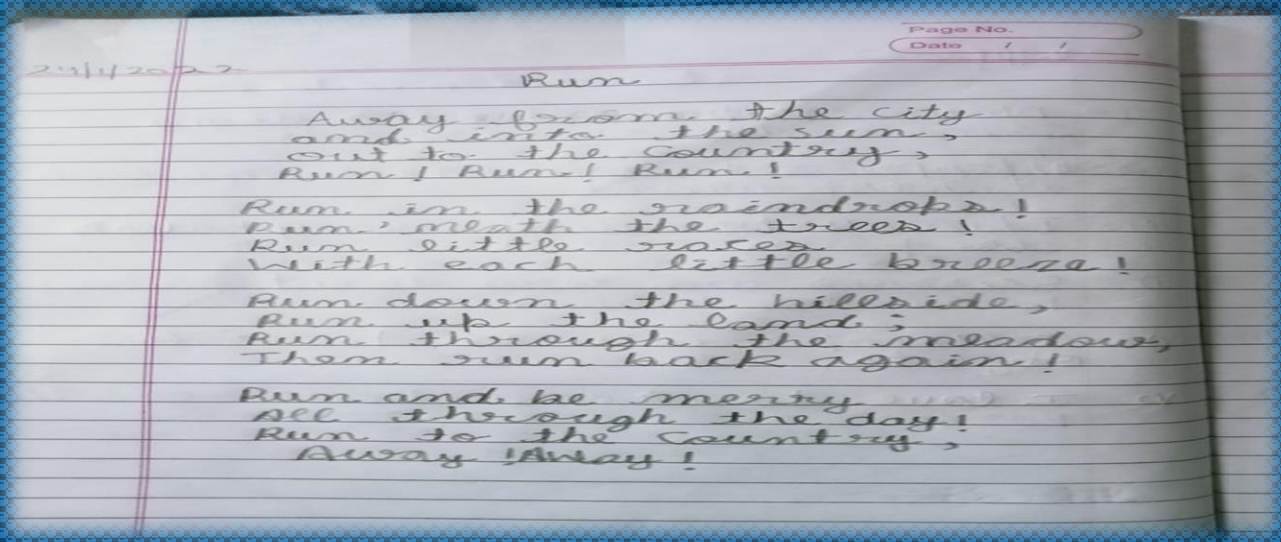 Page No.
Date / /
24/1/2022
Run
Away from the city
and into the sun,
out to the country,
Run! Run! Run!
Run in the raindrops!
Run 'neath the trees!
Run little races
With each little breeza!
Run down the hillside,
Run up the land;
Run through the meadow,
Then run back again!
Run and be merry
All through the day!
Run to the country,
Away! Away!